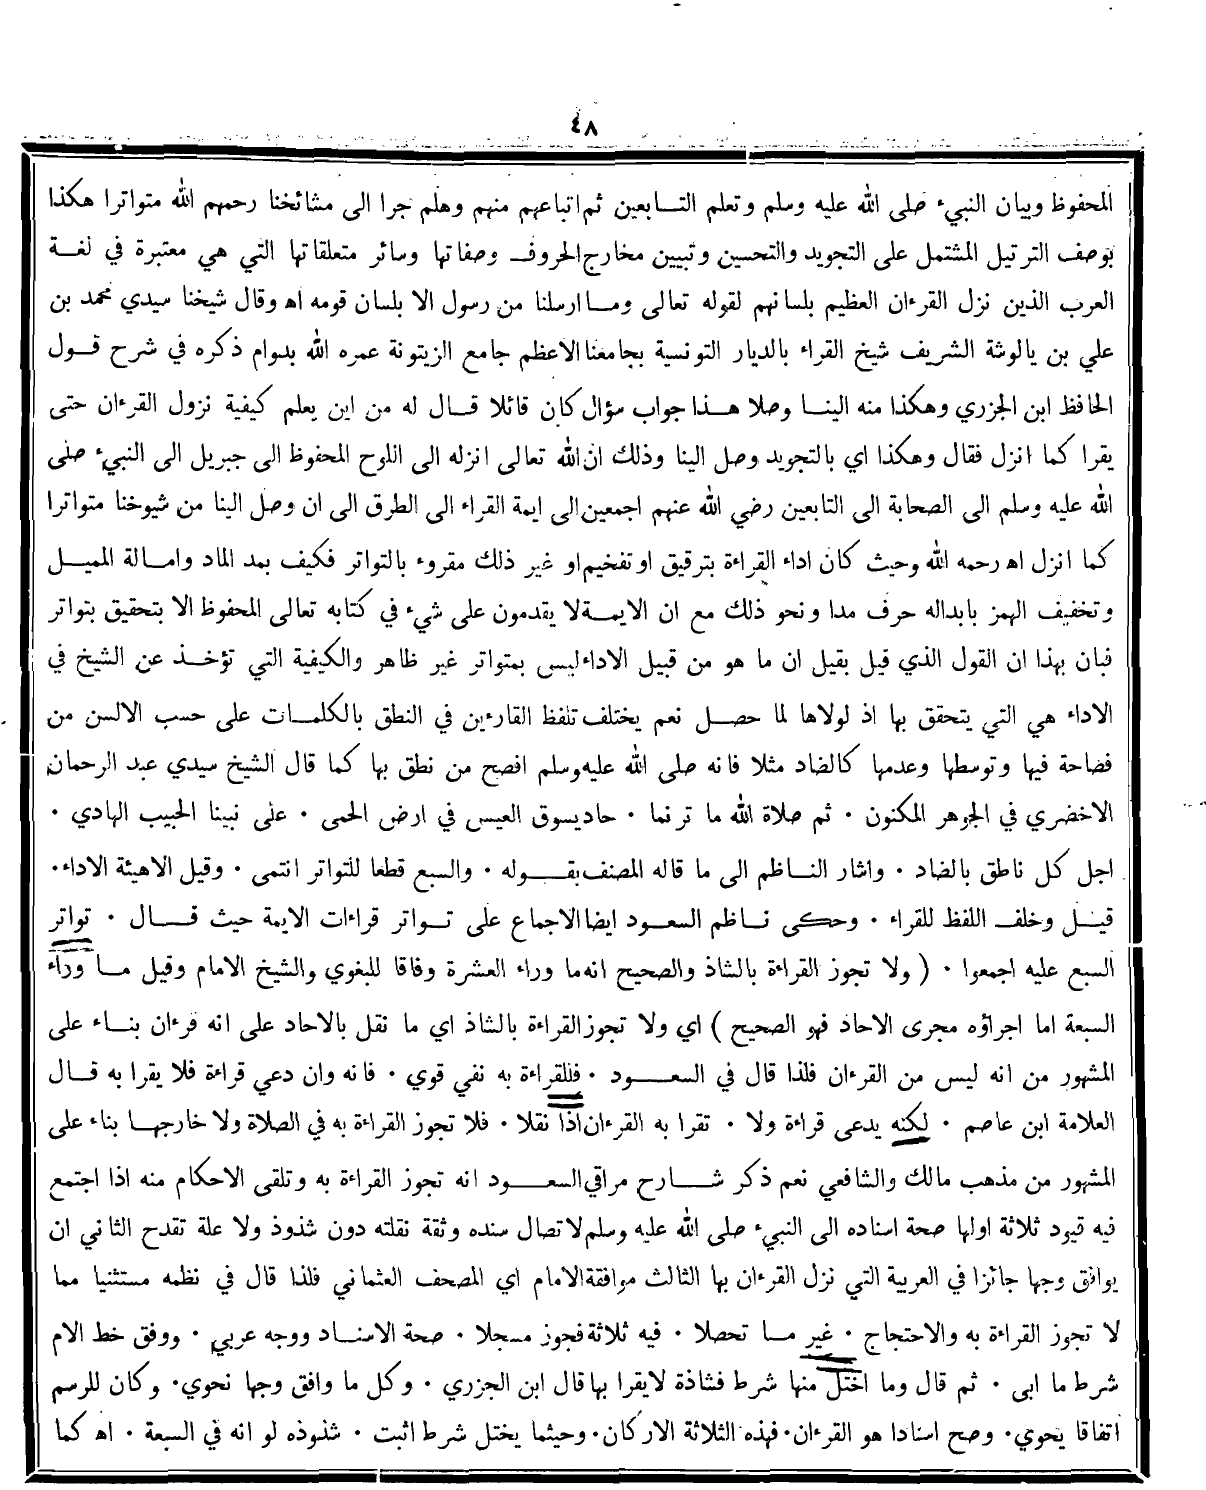 ٤٨
المحفوظ وبيان النبيء صلى الله عليه وسلم وتعلم التابعين ثم اتباعهم منهم وهلم جرا الى مشائخنا رحمهم الله متواترا هكذا
بوصف الترتيل المشتمل على التجويد والتحسين وتبيين مخارج الحروف وصفاتها وسائر متعلقاتها التي هي معتبرة في لغة
العرب الذين نزل القرءان العظيم بلسانهم لقوله تعالى وما ارسلنا من رسول الا بلسان قومه اه وقال شيخنا سيدي محمد بن
علي بن يالوشة الشريف شيخ القراء بالديار التونسية بجامعنا الاعظم جامع الزيتونة عمره الله بدوام ذكره في شرح قول
الحافظ ابن الجزري وهكذا منه الينا وصلا هذا جواب سؤال كان قائلا قال له من اين يعلم كيفية نزول القرءان حتى
يقرا كما انزل فقال وهكذا اي بالتجويد وصل الينا وذلك ان الله تعالى انزله الى اللوح المحفوظ الى جبريل الى النبيء صلى
الله عليه وسلم الى الصحابة الى التابعين رضي الله عنهم اجمعين الى ايمة القراء الى الطرق الى ان وصل الينا من شيوخنا متواترا
كما انزل اه رحمه الله وحيث كان اداء القراءة بترقيق او تفخيم او غير ذلك مقروء بالتواتر فكيف بمد الماد وامالة المميل
وتخفيف الهمز بابداله حرف مدا ونحو ذلك مع ان الايمة لا يقدمون على شيء في كتابه تعالى المحفوظ الا بتحقيق بتواتر
فبان بهذا ان القول الذي قيل بقيل ان ما هو من قبيل الاداء ليس بمتواتر غير ظاهر والكيفية التي تؤخذ عن الشيخ في
الاداء هي التي يتحقق بها اذ لولاها لما حصل نعم يختلف تلفظ القارءين في النطق بالكلمات على حسب الالسن من
فصاحة فيها وتوسطها وعدمها كالضاد مثلا فانه صلى الله عليه وسلم افصح من نطق بها كما قال الشيخ سيدي عبد الرحمان
الاخضري في الجوهر المكنون ٠ ثم صلاة الله ما ترنما ٠ حاد يسوق العيس في ارض الحمى ٠ على نبينا الحبيب الهادي ٠
اجل كل ناطق بالضاد ٠ واشار الناظم الى ما قاله المصنف بقوله ٠ والسبع قطعا للتواتر انتمى ٠ وقيل الاهيئة الاداء ٠
قيل وخلف اللفظ للقراء ٠ وحكى ناظم السعود ايضا الاجماع على تواتر قراءات الايمة حيث قال ٠ تواتر
السبع عليه اجمعوا ٠ ( ولا تجوز القراءة بالشاذ والصحيح انه ما وراء العشرة وفاقا للبغوي والشيخ الامام وقيل ما وراء
السبعة اما اجراؤه مجرى الاحاد فهو الصحيح ) اي ولا تجوز القراءة بالشاذ اي ما نقل بالاحاد على انه قرءان بناء على
المشهور من انه ليس من القرءان فلذا قال في السعود ٠ فللقراءة به نفي قوي ٠ فانه وان دعي قراءة فلا يقرا به قال
العلامة ابن عاصم ٠ لكنه يدعى قراءة ولا ٠ تقرا به القرءان اذا نقلا ٠ فلا تجوز القراءة به في الصلاة ولا خارجها بناء على
المشهور من مذهب مالك والشافعي نعم ذكر شارح مراقي السعود انه تجوز القراءة به وتلقى الاحكام منه اذا اجتمع
فيه قيود ثلاثة اولها صحة اسناده الى النبيء صلى الله عليه وسلم لاتصال سنده وثقة نقلته دون شذوذ ولا علة تقدح الثاني ان
يوافق وجها جائزا في العربية التي نزل القرءان بها الثالث موافقة الامام اي المصحف العثماني فلذا قال في نظمه مستثنيا مما
لا تجوز القراءة به والاحتجاج ٠ غير ما تحصلا ٠ فيه ثلاثة فجوز مسجلا ٠ صحة الاسناد ووجه عربي ٠ ووفق خط الام
شرط ما ابى ٠ ثم قال وما اختل منها شرط فشاذة لايقرا بها قال ابن الجزري ٠ وكل ما وافق وجها نحوي ٠ وكان للرسم
اتفاقا يحوي ٠ وصح اسنادا هو القرءان ٠ فهذه الثلاثة الاركان ٠ وحيثما يختل شرط اثبت ٠ شذوذه لو انه في السبعة ٠ اه كما